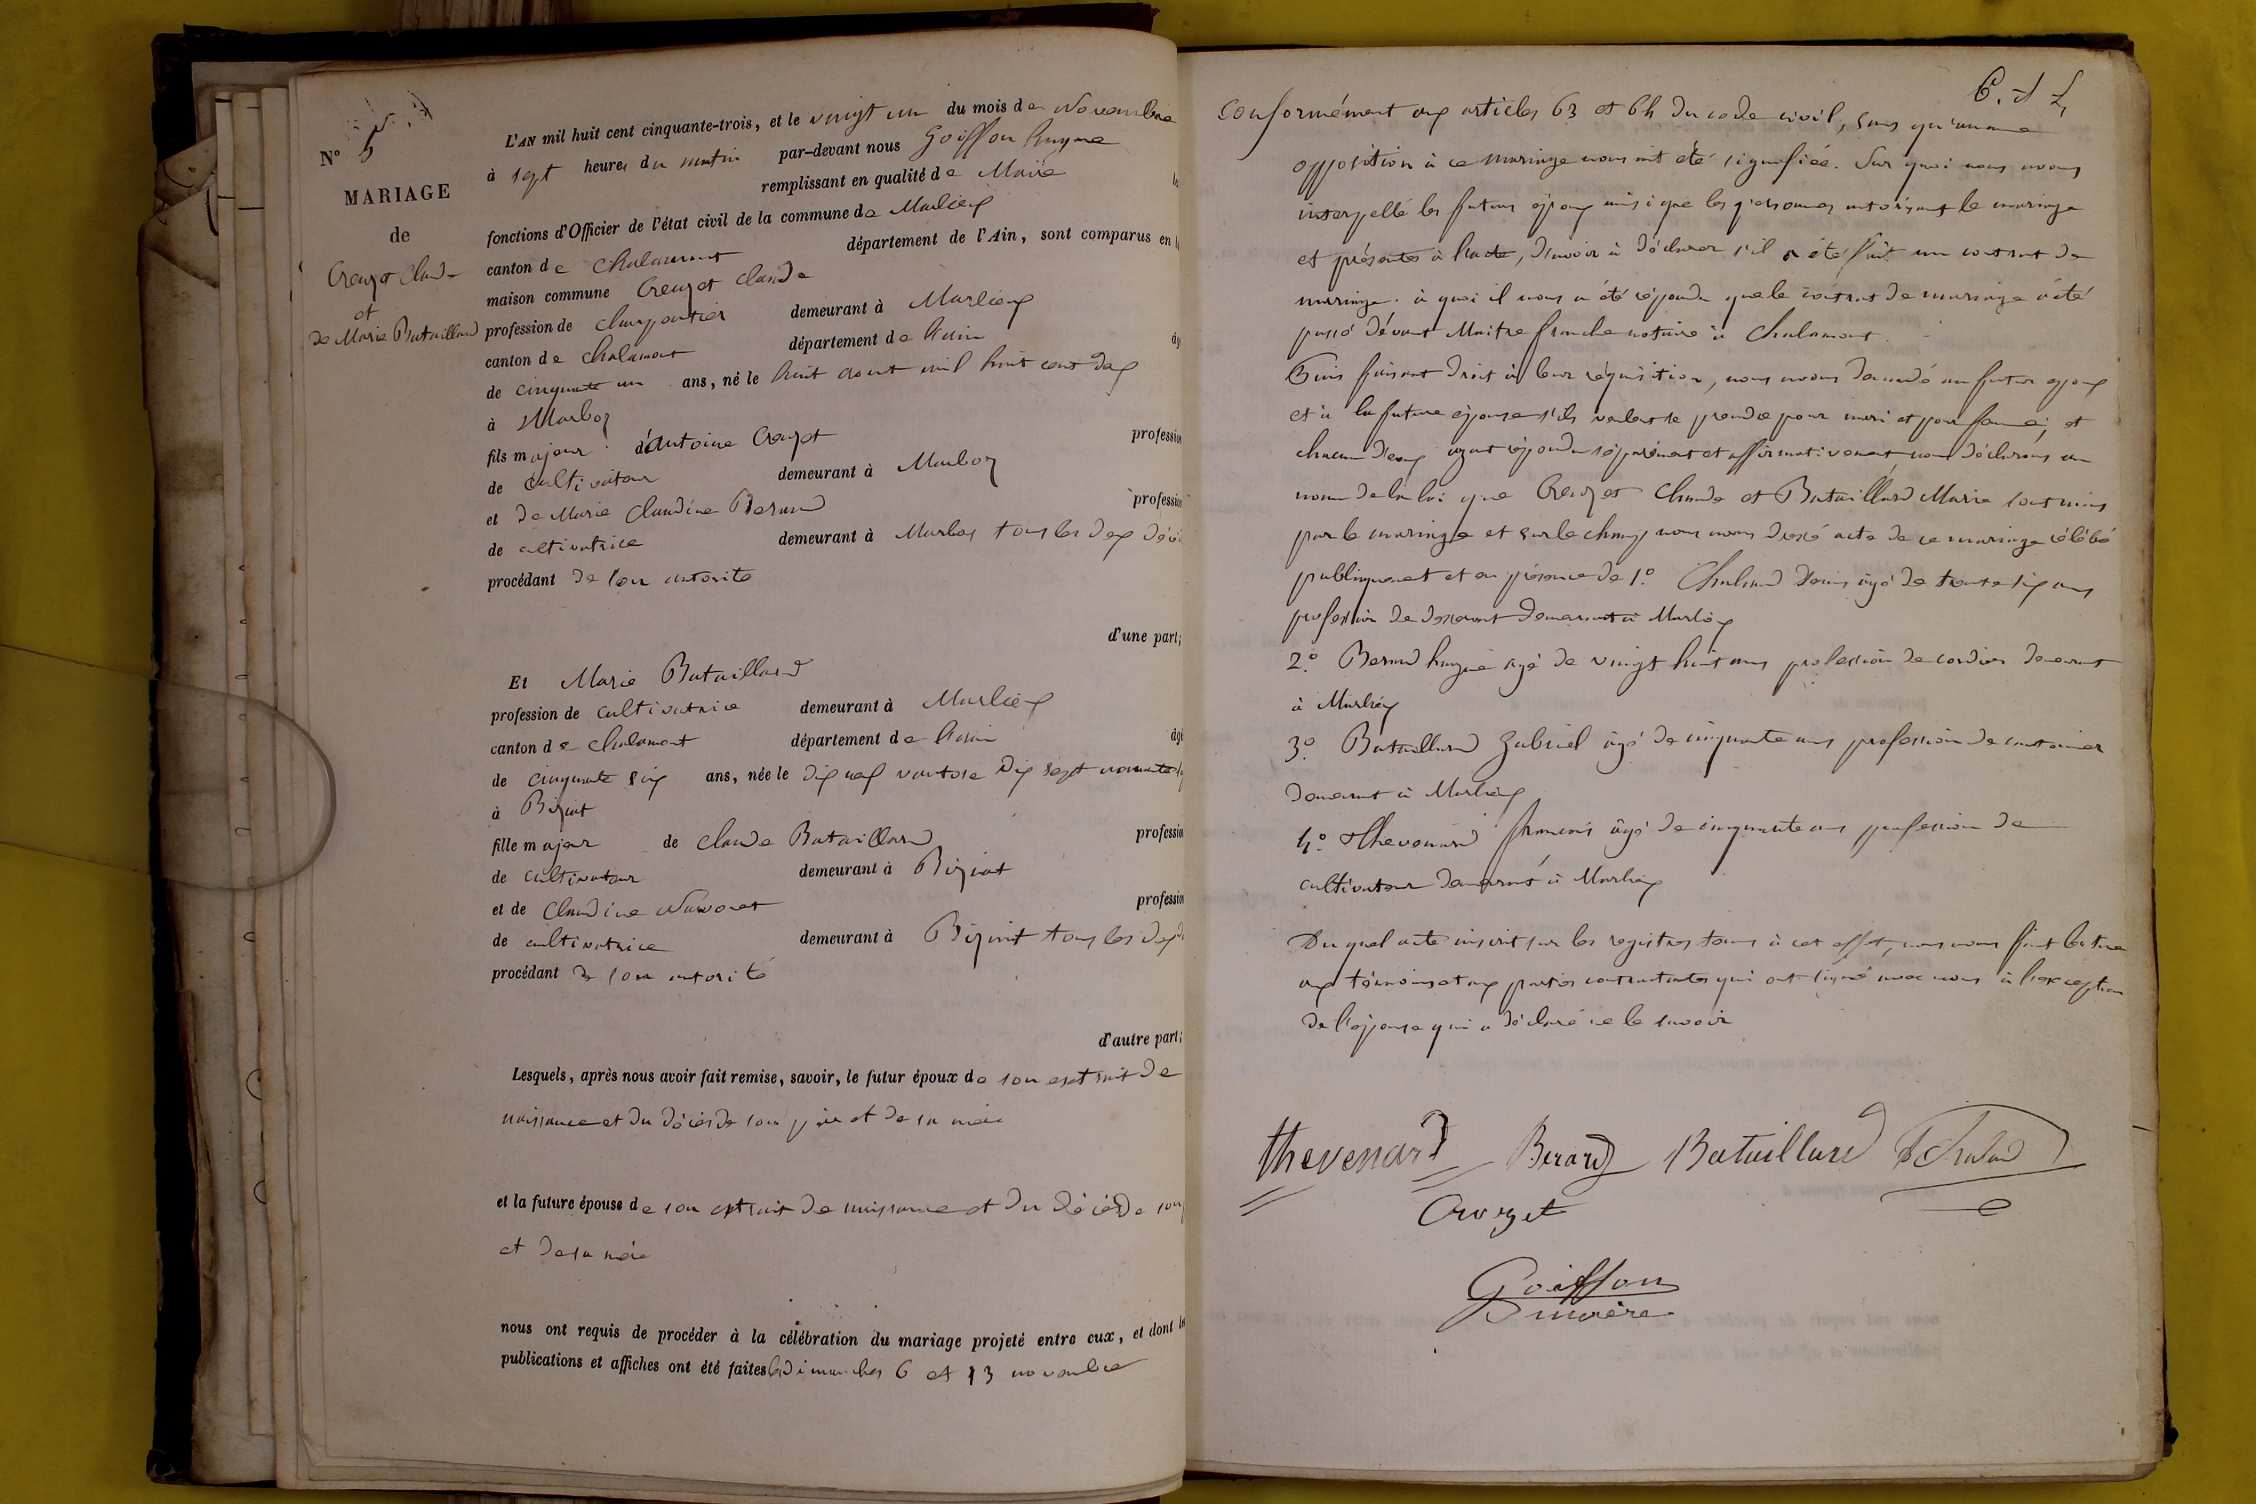 N° 5
MARIAGE
de
Creuzet Claude
et
de Marie Bataillard
L'AN mil huit cent cinquante-trois, et le vingt un du mois de Novembre
à sept heures du matin par-devant nous Goiffon
remplissant en qualité de Maire
fonctions d'Officier de l'état civil de la commune de Marlieux
canton de Chalamont département de l'Ain, sont comparus en
maison commune Creuzet Claude
profession de charpentier demeurant à Marlieux
canton de Chalamont département de l'ain
de cinquante un ans, né le huit aout mil huit cent deux
à Marboz
fils majeur d'Antoine Creuzet profession
de cultivateur demeurant à Marboz
et de Marie Claudine Berard profession
de cultivatrice demeurant à Marboz tous les deux
procédant de son autorité
d'une part;
Et Marie Bataillard
profession de cultivatrice demeurant à Marlieux
canton de Chalamont département de l'ain âgé
de cinquante six ans, née le dix neuf ventose dix sept nonante
à Biziat
fille majeur de Claude Bataillard profession
de cultivateur demeurant à Biziat
et de Claudine profession
de cultivatrice demeurant à Biziat tous les deux
procédant de son autorité
d'autre part;
Lesquels, après nous avoir fait remise, savoir, le futur époux de son extrait de
naissance et du décès de son père et de sa mère
et la future épouse de son extrait de naissance et du décès de son
et de sa mère
nous ont requis de procéder à la célébration du mariage projeté entre eux, et dont les
publications et affiches ont été faites les dimanches 6 et 13 novembre
conformément aux articles 63 et 64 du code civil, sans qu'aucune
opposition à ce mariage nous ait été signifiée. Sur quoi nous avons
interpellé les futurs époux ainsi que les personnes autorisant le mariage
et présentes à l'acte, d'avoir à déclarer s'il a été fait un contrat de
mariage. à quoi il nous a été répondu que le contrat de mariage a été
passé dévant Maitre notaire à Chalamont.
Puis faisant droit à leur réquisition, nous avons demandé au futur époux
et à la future épouse s'ils veulent se prendre pour mari et pour femme; et
chacun d'eux ayant répondu séparément et affirmativement nous déclarons au
nom de la loi que Creuzet Claude et Bataillard Marie sont unis
par le mariage et sur le champ nous avons dressé acte de ce mariage célébré
publiquement et en présence de 1.° Chaland Denis âgé de trente six ans
profession de demeurant à Marlieux
2.° Berard âgé de vingt huit ans profession de cordier demeurant
à Marlieux
3.° Bataillard Gabriel âgé de cinquante ans profession de
demeurant à Marlieux
4.° Thevenard francois âgé de cinquante ans profession de
cultivateur demeurant à Marlieux
Du quel acte inscrit sur les registres tenus à cet effet, nous avons fait lecture
aux témoins et aux parties contractantes qui ont signé avec nous à l'exception
de l'épouse qui a déclaré ne le savoir
thevenard Berard Bataillard D Chaland
Creuzet
Goiffon
maire